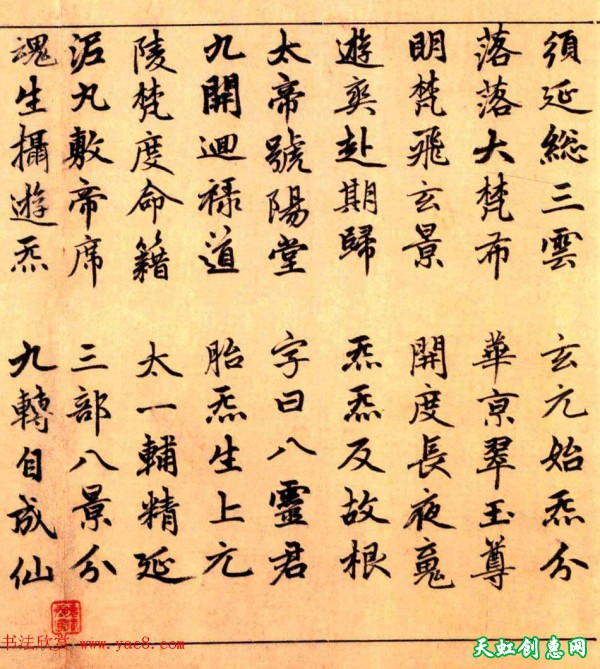 須延総三雲 玄元始炁分
落落大梵布 華亰翠玉尊
明梵飛玄景 開度長夜䰟
遊爽赴期歸 炁炁反故根
太帝號陽堂 字曰八靈君
九開迴祿道 胎炁生上元
陵梵度命籍 太一輔精延
泥丸敷帝席 三部八景分
魂生攝遊炁 九轉自成仙
书法欣赏 www.yac8.com
天虹创惠网